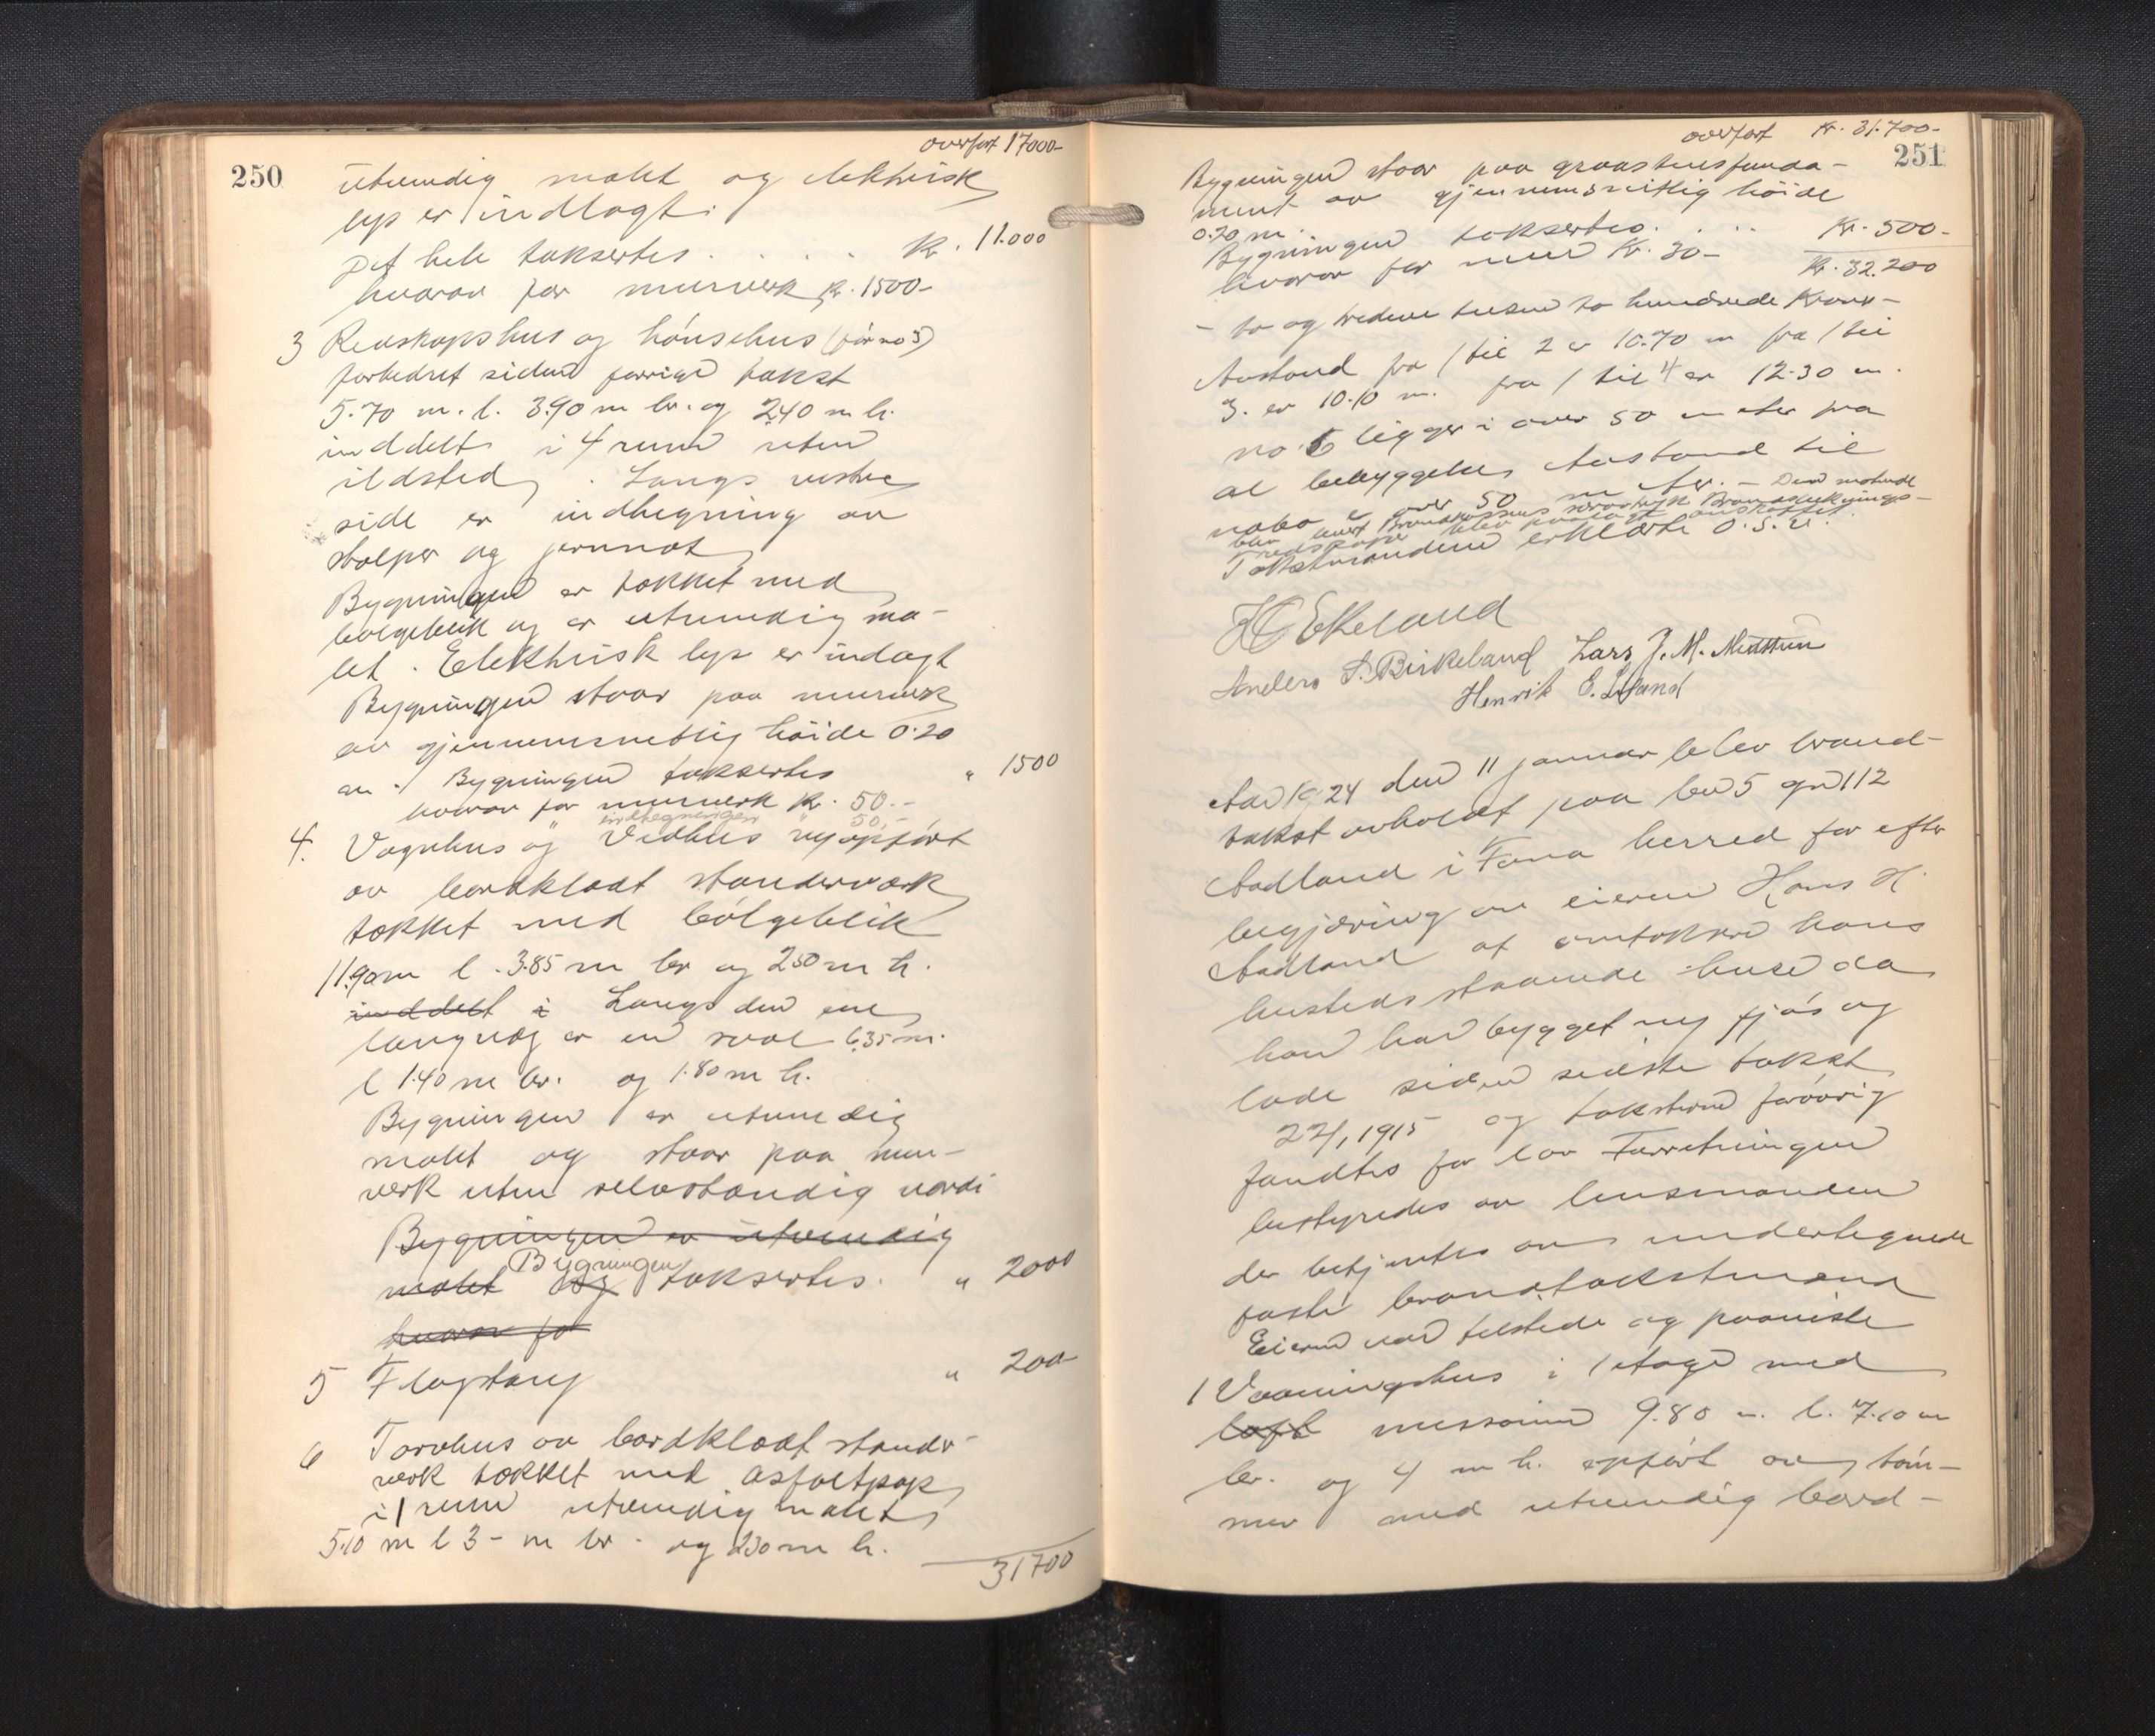 overført 17000-
250
utvendig malt og elektrisk
lys er indlagt.
Det hele taksertes . . . . kr. 11.000
hvorav for murverk kr. 1500-
3 Redskapshus og hönsehus (før no 3)
forbedret siden forrige takst
5.70 m. l. 3.90 m br. og 2.40 m h.
inddelt i 4 rum uten
ildsted. Langs vestre
side er indhegning av
stolper og jernnot
Bygningen er tækket med
bølgeblik og er utvendig ma-
let. Elektrisk lys er indlagt
Bygningen staar paa murverk
av gjennemsnitlig høide 0.20
m. Bygningen taksertes " 1500
hvorav for murverk kr. 50.-
" " indhegningen " 50.-
4. Vognhus og Vedhus nyopført
av bordklædt standerværk
tækket med bölgeblik
11.90 m l. 3.85 m br og 2.50 m h.
inddelt i Langs den ene
langvæg er en sval 6.35 m.
l 1.40 m br. og 1.80 m h.
Bygningen er utvendig
malt og staar paa mur-
verk uten selvstændig værdi
Bygningen er utvendig
malt og Bygningen taksertes. " 2000
hvorav for
5 Flagstang " 200-
6 Torvhus av bordklædt stander-
verk tækket med asfaltpap
i 1 rum utvendig malt
5.10 m l 3- m br. og 2.30 m h.
31700
overført kr. 31.700-
251
Bygningen staar paa graastensfunda-
ment av gjennemsnitlig höide
0.70 m.
Bygningen taksertes. . .. Kr. 500-
hvorav for mur Kr. 30- Kr. 32.200
- to og tredve tusen to hundrede Kroner -
Avstand fra 1 til 2 er 10.70 m fra 1 til
3. er 10.10 m. fra 1 til 4 er 12.30 m.
no 6 ligger i over 50 meter fra
al bebyggelse Avstand til
nabo er over 50 meter. - Den motende
blev paalagt anskaffet
Takstmændene erklærte O. S. V.
H C Ekeland
Anders S. Birkeland Lars J. M. Midttun
Henrik E.
Aar 1924 den 11 januar blev brand-
takst avholdt paa br 5 gn 112
Aadland i Fana herred for efter
begjæring av eieren Hans H.
Aadland at omtaksere hans
husteds staaende huse da
han har bygget ny fjøs og
lade siden sidste takst
22/1 1915 og taksterne forøvrig
fandtes for lav Forretningen
bestyredes av lensmanden
der betjentes av undertegnede
faste brandtakstmænd
Eieren var tilstede og paaviste
1 Vaaningshus i 1 etage med
loft messanin 9.80 m. l. 7.10 m
br. og 4 m h. opført av töm-
mer med utvendig bord-